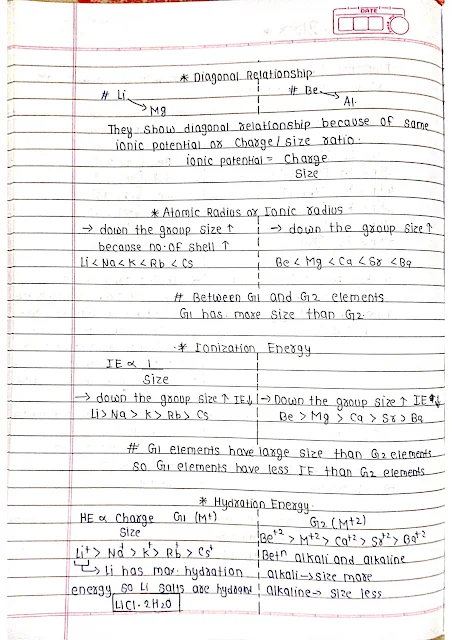 DATE
* Diagonal Relationship
# Li → Mg
# Be → Al.
They show diagonal relationship because of same
ionic potential or Charge / size ratio.
ionic potential = Charge
Size
* Atomic Radius or Ionic radius
→ down the group size ↑
because no. of shell ↑
Li < Na < K < Rb < Cs
→ down the group size ↑
Be < Mg < Ca < Sr < Ba
# Between G1 and G2 elements
G1 has more size than G2.
* Ionization Energy
IE ∝ 1
Size
→ down the group size ↑ IE↓
Li > Na > K > Rb > Cs
→ Down the group size ↑ IE↓
Be > Mg > Ca > Sr > Ba
# G1 elements have large size than G2 elements
so G1 elements have less IE than G2 elements
* Hydration Energy.
HE ∝ Charge
Size
G1 (M+)
Li+ > Na+ > K+ > Rb+ > Cs+
→ Li has max. hydration
energy so Li salts are
LiCl·2H2O
G2 (M+2)
Be+2 > M+2 > Ca+2 > Sr+2 > Ba+2
Betn alkali and alkaline
alkali → size more
alkaline → size less